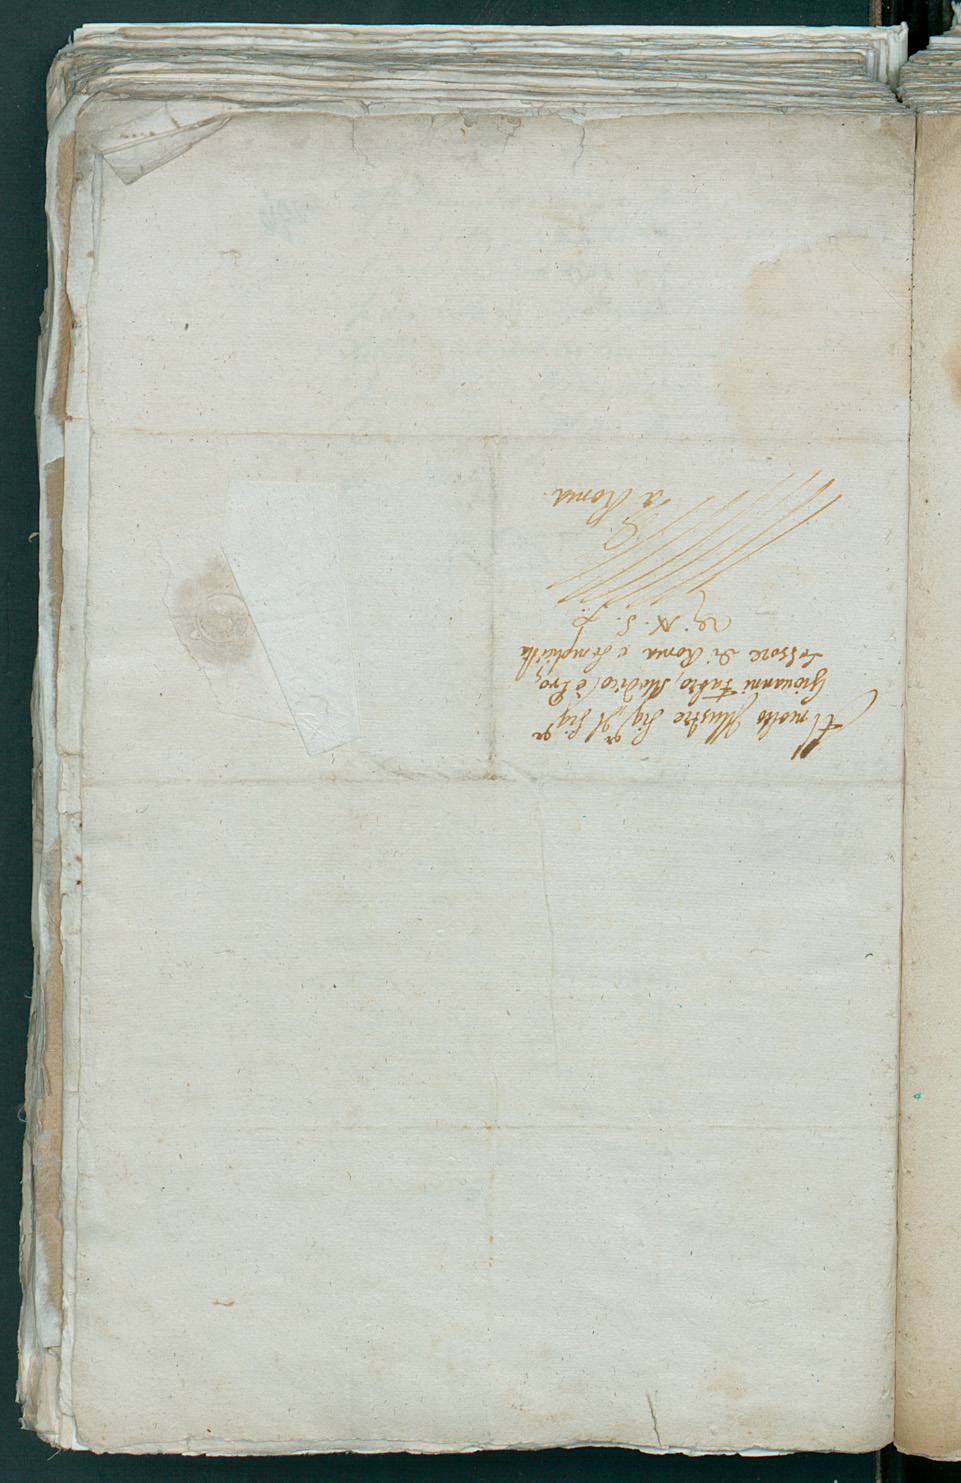 Al molto Illustre Sig.r Il Sig.r
Giovanni Fabro, Medico, è Pro,
fessore di Roma e Simplicista
di N. S.re
a Roma